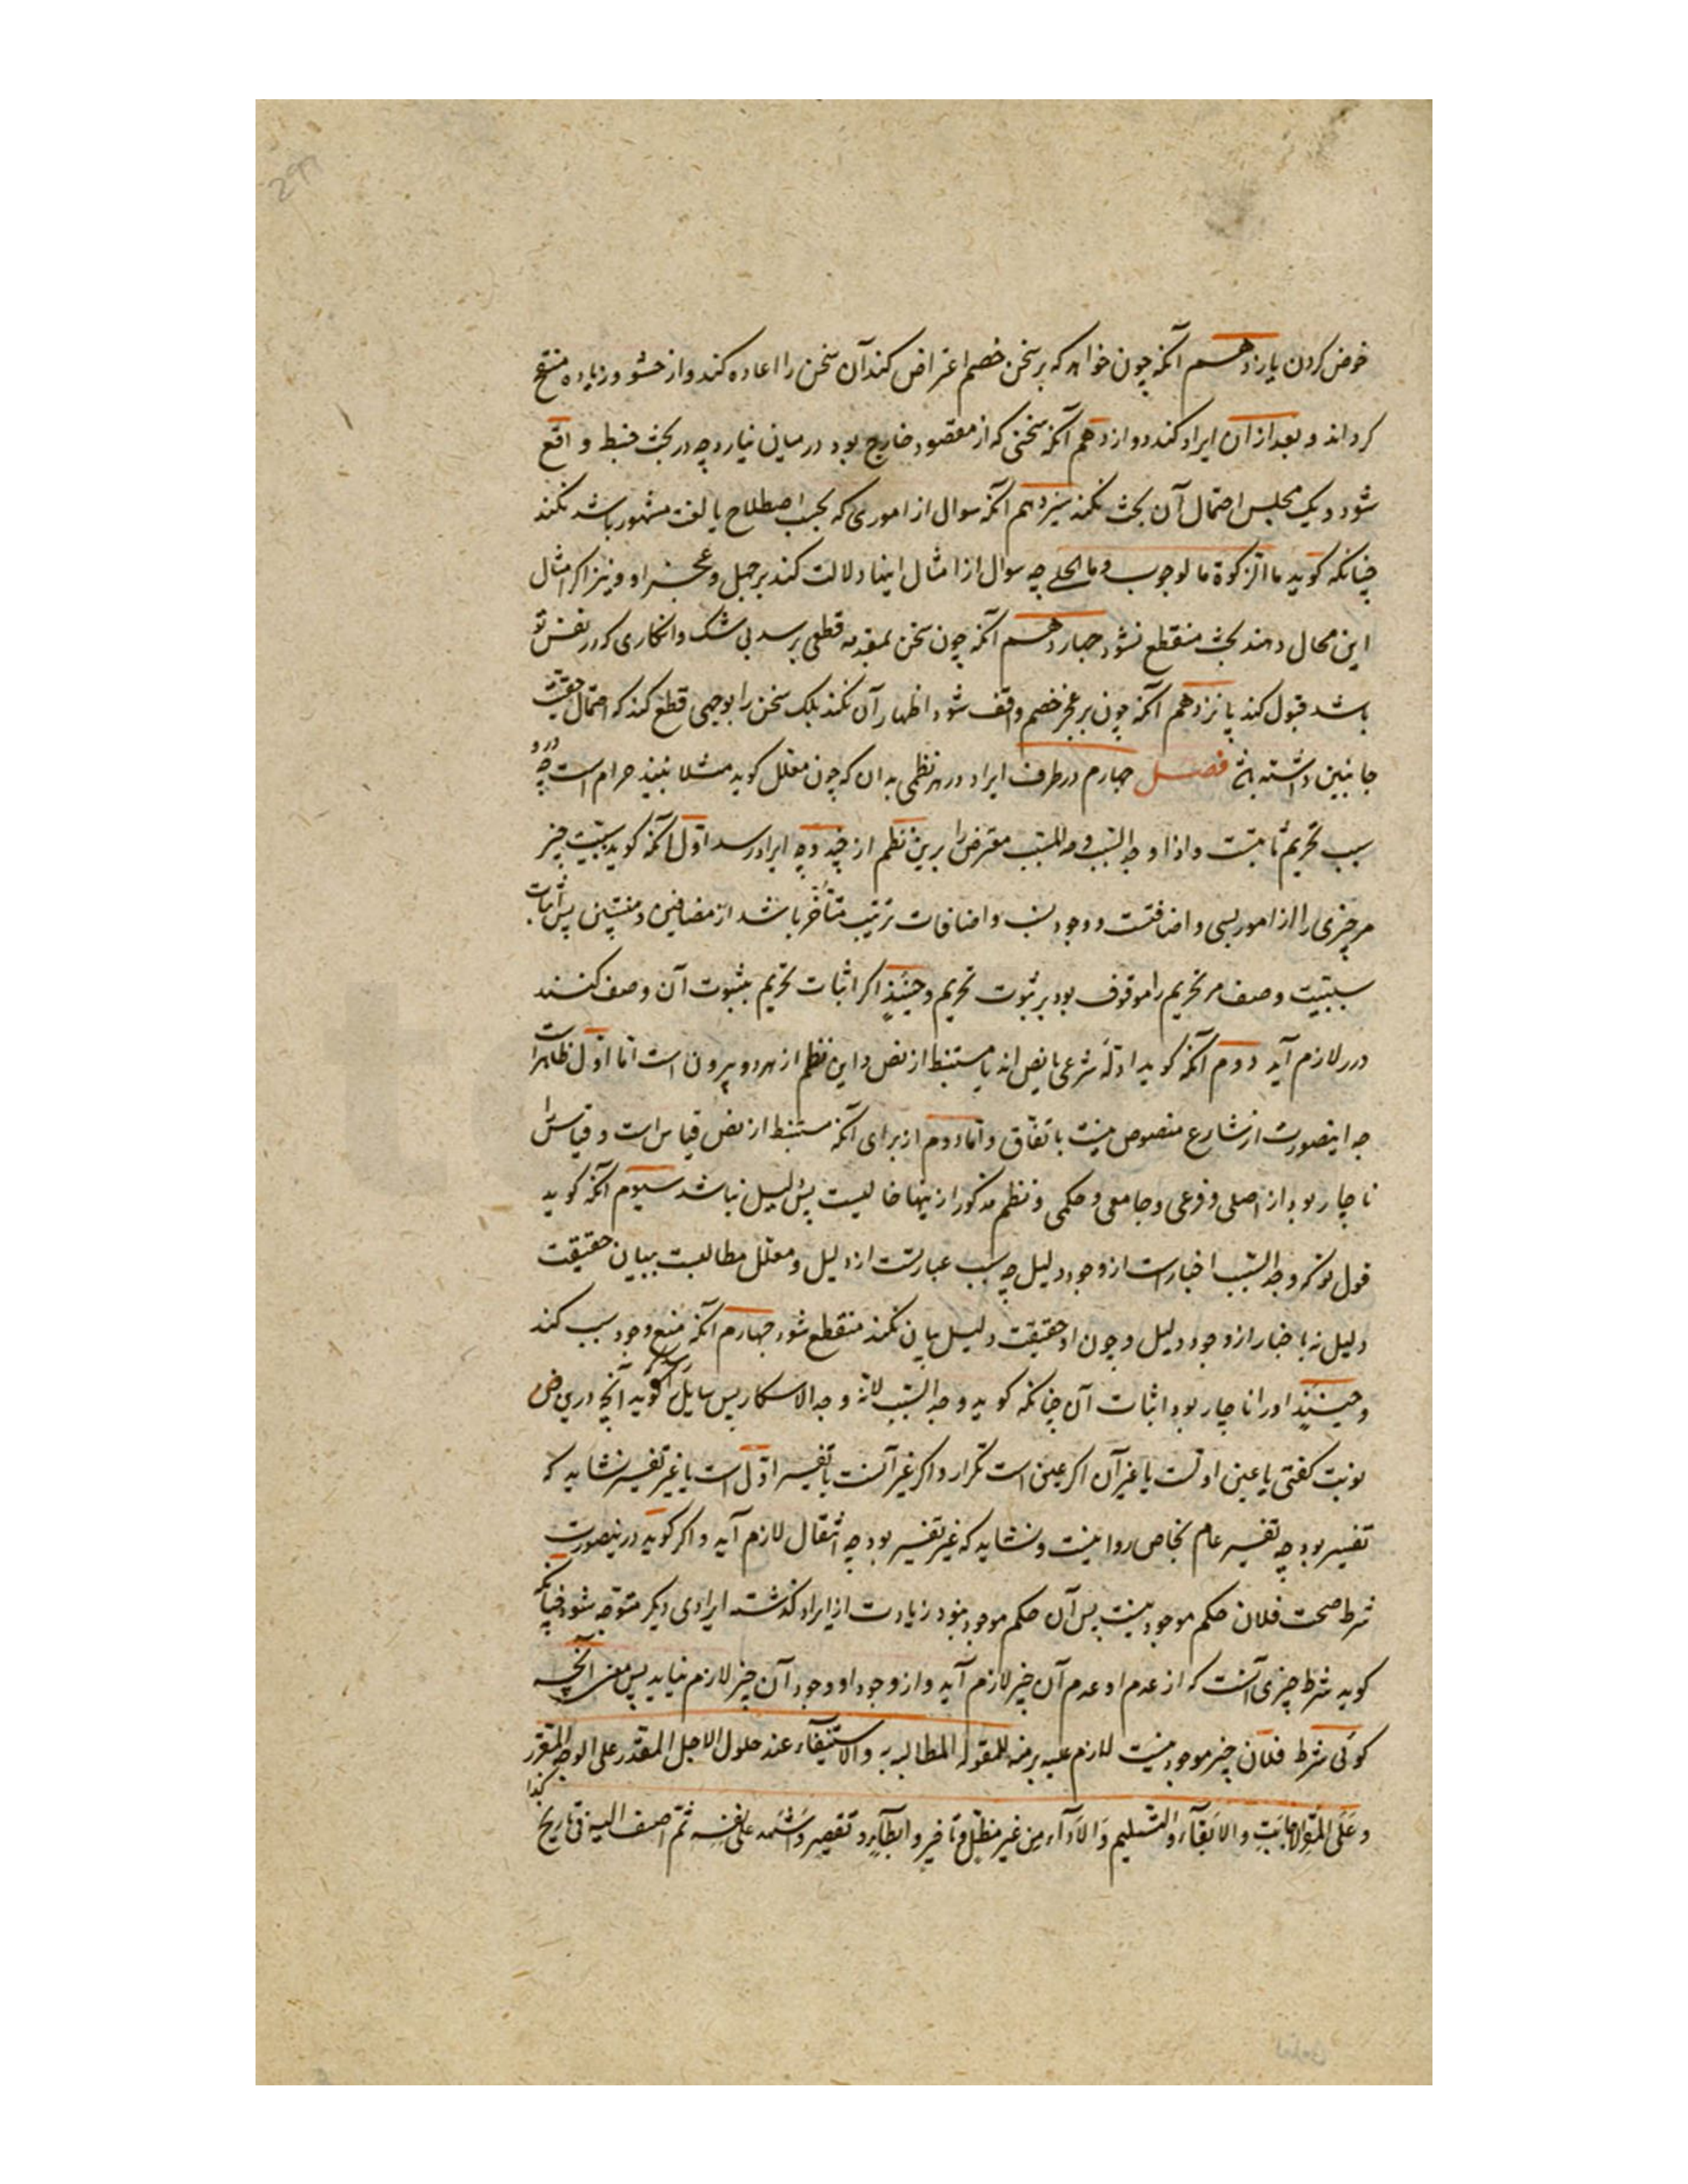 خوض کردن یازدهم آنکه چون خواهد که بر سخن خصم اعتراض کند آن سخن را اعاده کند و از حشو و زیاده منقح
کرداند و بعد از آن ایراد کند دوازدهم آنکه سخنی که از مقصود خارج بود در میان نیارد چه در بحث خبط واقع
شود و یک مجلس احتمال آن بحث نکند سیزدهم آنکه سوال از اموری که بحسب اصطلاح یا لغت مشهور باشد نکند
چنانکه کوید ما الزکوة ما لوجوب وما الحلی چه سوال از امثال اینها دلالت کند بر جهل و عجز او و نیز اکر امثال
این مجال دهند بحث منقطع نشود چهاردهم آنکه چون سخن بمقدمه قطعی رسد بی شک و انکاری که در نفس تو
باشد قبول کند پانزدهم آنکه چون بر عجز خصم واقف شود اظهار آن نکند بلک سخن را بوجهی قطع کند که احتمال حقیت
جانبین داشته باشد فصل چهارم در طرف ایراد در هر نظمی بدان که چون معلل کوید مثلا نبیذ حرام است چه درو
سبب تحریم ثابتست و اذا وجد السبب وجد المسبب معترض را برین نظم از چند وجه ایراد رسد اول آنکه کوید سببیت چیز
مر چیزی را از امور نسبی و اضافتست و وجود نسب و اضافات ترتیب متأخر باشد از مضافین و منتسبین پس اثبات
سببیت وصف مر تحریم را موقوف بود بر ثبوت تحریم و حینئذ اکر اثبات تحریم بثبوت آن وصف کنند
دور لازم آید دوم آنکه کوید ادله شرعی یا نص اند یا مستنبط از نص و این نظم از هر دو بیرون است اما اول ظاهرست
چه اینصورت از شارع منصوص نیست باتفاق و اما دوم از برای آنکه مستنبط از نص قیاس است و قیاس را
ناچار بود از اصلی و فرعی و جامعی و حکمی و نظم مذکور از ینها خالیست پس دلیل نباشد سیوم آنکه کوید
قول تو که وجد السبب اخبارست از وجود دلیل چه سبب عبارتست از دلیل و معلل مطالبست ببیان حقیقت
دلیل نه باخبار از وجود دلیل و چون او حقیقت دلیل بیان نکند منقطع شود چهارم آنکه منع وجود سبب کند
و حینئذ او را ناچار بود اثبات آن چنانکه کوید وجد السبب لانه وجد الاسکار پس سایل را رسد که کوید آنچه درین
نوبت کفتی یا عین اولست یا غیر آن اکر عین است تکرار و اکر غیر آنست یا تفسیر اول است یا غیر تفسیر نشاید که
تفسیر بود چه تفسیر عام بخاص روا نیست و نشاید که غیر تفسیر بود چه انتقال لازم آید و اکر کوید درینصورت
شرط صحت فلان حکم موجود نیست پس آن حکم موجود نبود زیادت از ایراد کذشته ایرادی دیکر متوجه شود چنانکه
کوید شرط چیزی آنست که از عدم او عدم آن چیز لازم آید و از وجود او وجود آن چیز لازم نیاید پس معنی آنچه
کوئی شرط فلان چیز موجود نیست لازم علیه للمقر له المطالبه به والاستیفاء عند حلول الاجل المقدر علی الوجه المقرر
وعلی المقر الاجابت والایفاء والتسلیم والاداء من غیر مطل و تاخیر وابطاء و تقصیر واشهد علی نفسه ثم اضف الیه فی تاریخ کذا